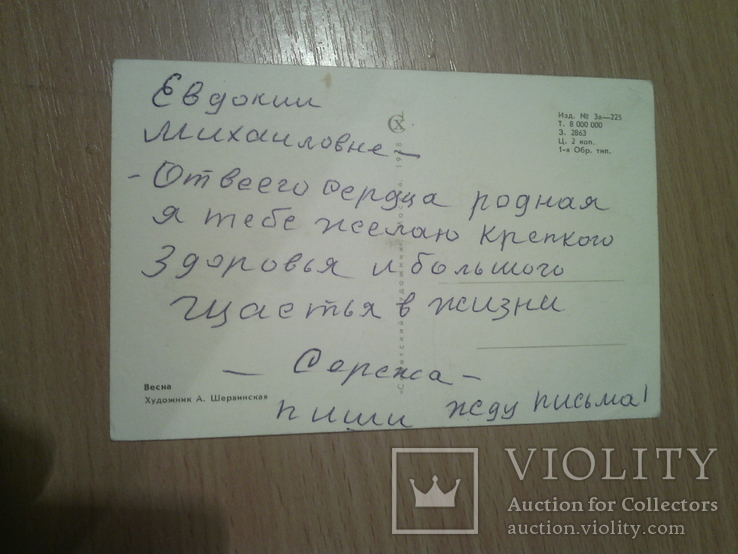 Евдокии
Михаиловне –
Изд. № 3а—225
Т. 8 000 000
З. 2863
Ц. 2 коп.
1-я Обр. тип.
- От всего сердца родная
я тебе желаю крепкого
Здоровья и большого
щастья в жизни
– Сережа –
пиши жду письма!
Весна
Художник А. Шервинская
VIOLITY
Auction for Collectors
auction.violity.com